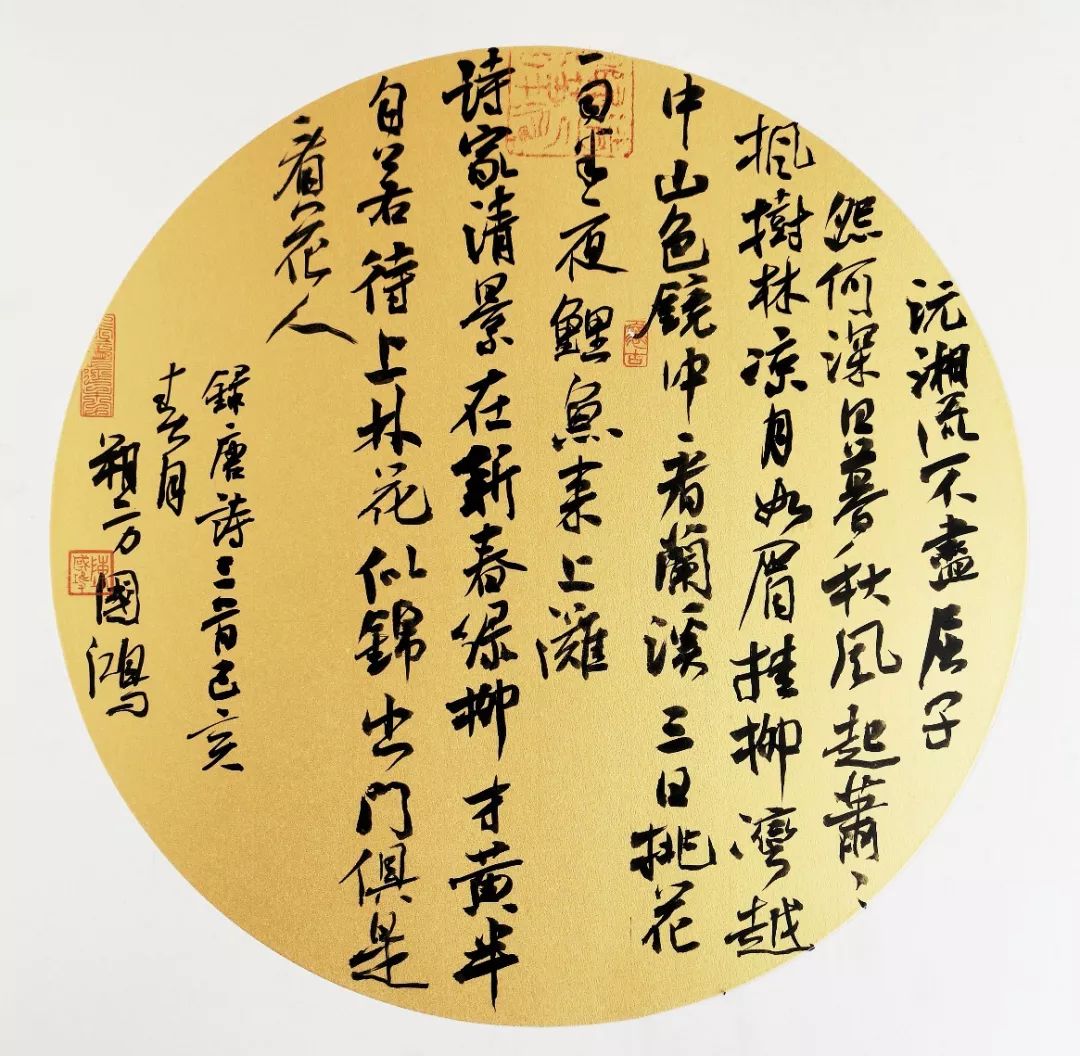 沅湘流不盡屈子
怨何深日暮秋風起蕭〻
楓樹林涼月如眉挂柳灣越
中山色鏡中看蘭溪三日桃花
雨半夜鯉魚来上灘
詩家清景在新春綠柳才黄半
匀若待上林花似錦出門俱是
看花人
録唐詩三首己亥
春月
朔方國鴻